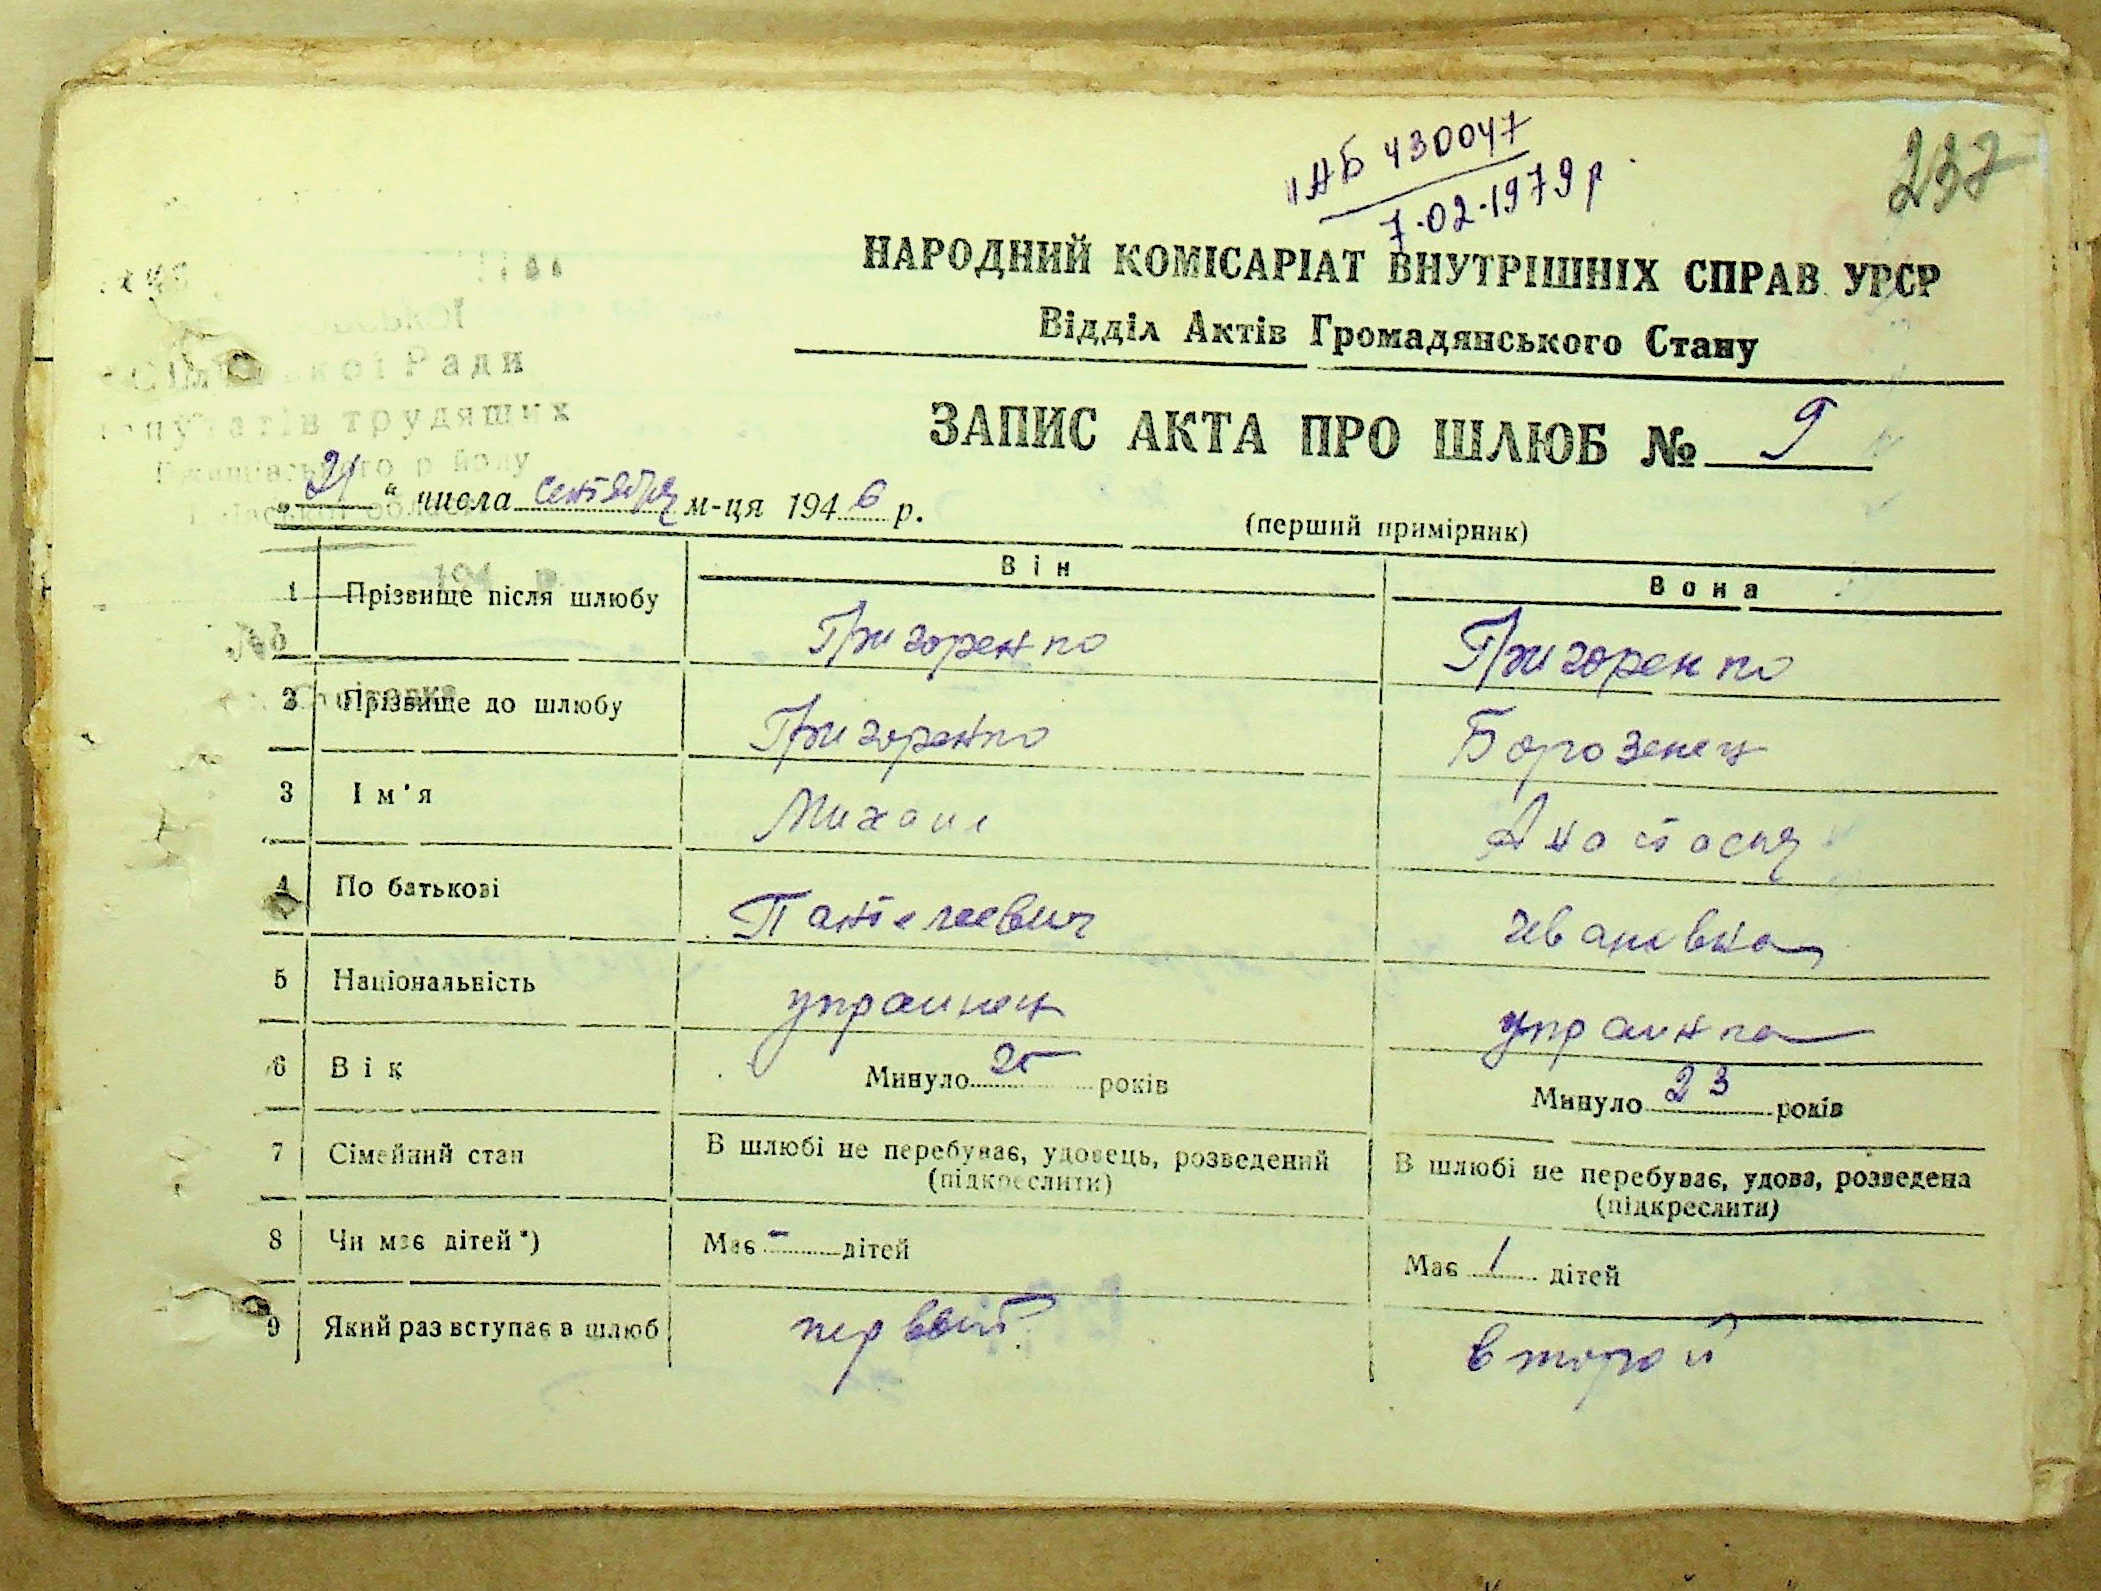 ІАБ 430047
7.02.1979 р.
237
НАРОДНИЙ КОМІСАРІАТ ВНУТРІШНІХ СПРАВ УРСР
Відділ Актів Громадянського Стану
кої Ради
трудящих
ЗАПИС АКТА ПРО ШЛЮБ № 9
„21“ числа сентября м-ця 1946 р.
(перший примірник)
194 р.
Він
Вона
1 Прізвище після шлюбу Григоренко Григоренко
2 Прізвище до шлюбу Григоренко Борозенец
3 Ім'я Михаил Анастасия
4 По батькові Пантелеевич Ивановна
5 Національність украинец украинка
6 Вік Минуло 25 років Минуло 23 років
7 Сімейний стан В шлюбі не перебуває, удовець, розведений (підкреслити) В шлюбі не перебуває, удова, розведена (підкреслити)
8 Чи має дітей*) Має - дітей Має 1 дітей
9 Який раз вступає в шлюб первый второй